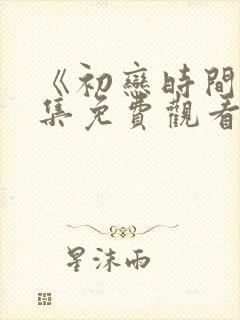 《初戀時間
集免費觀看
星沫雨